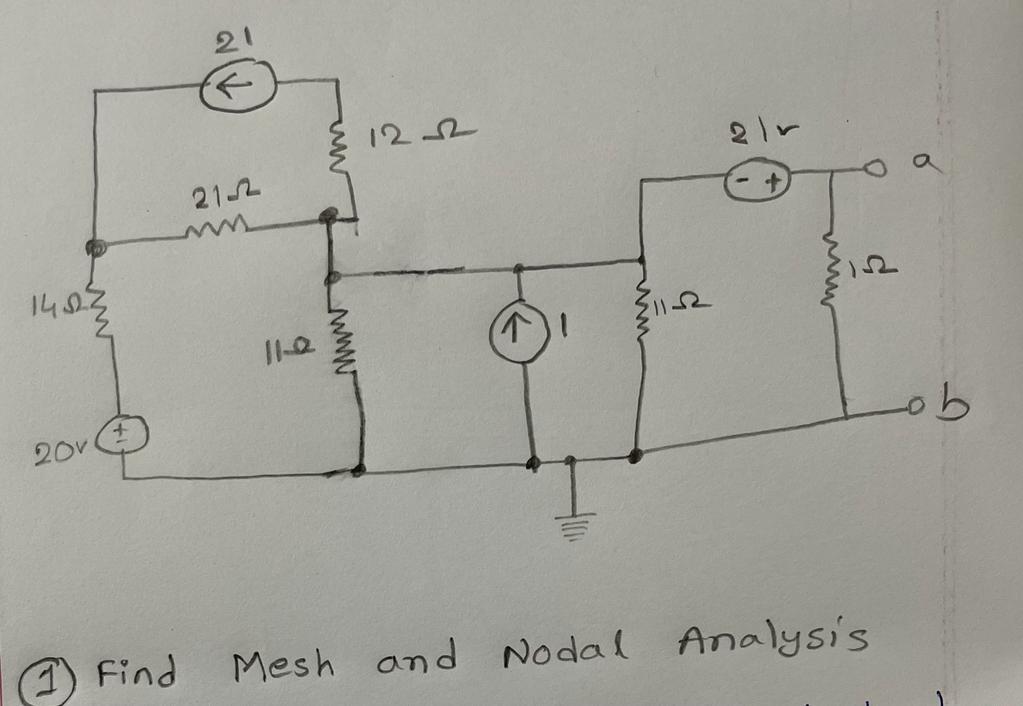 21
12 Ω
21Ω
14Ω
11Ω
20v
±
1
11Ω
21v
- +
a
1Ω
b
① Find Mesh and Nodal Analysis